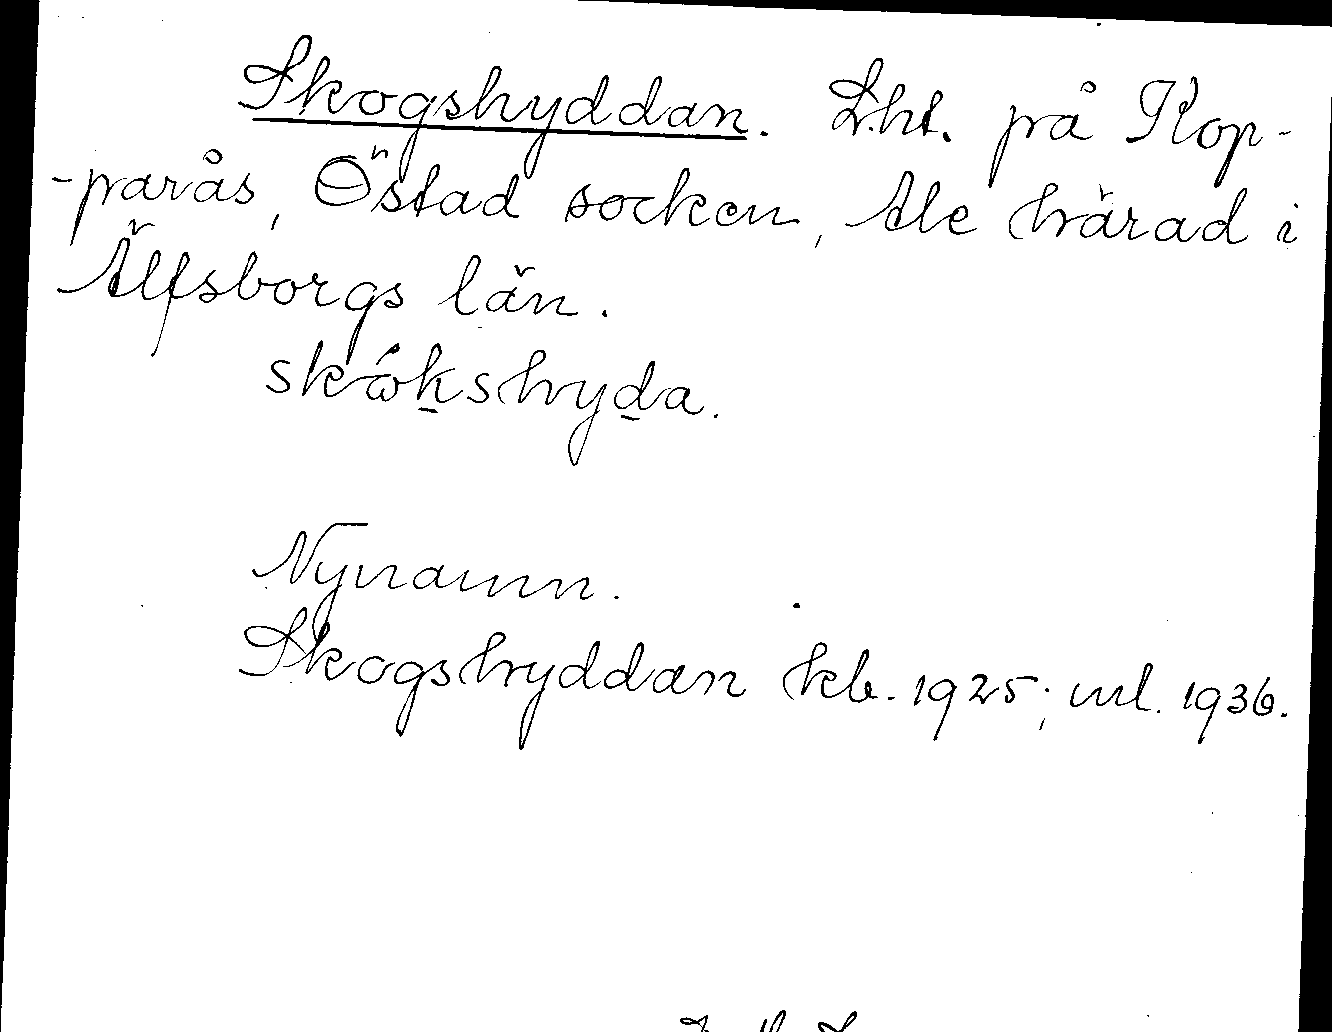 Skogshyddan. Lht. på Kop-
-parås, Östad socken, Ale härad i
Älfsborgs län.
skω̂k̠shyd̠a.
Nynamn.
Skogshyddan kb. 1925; ml. 1936.